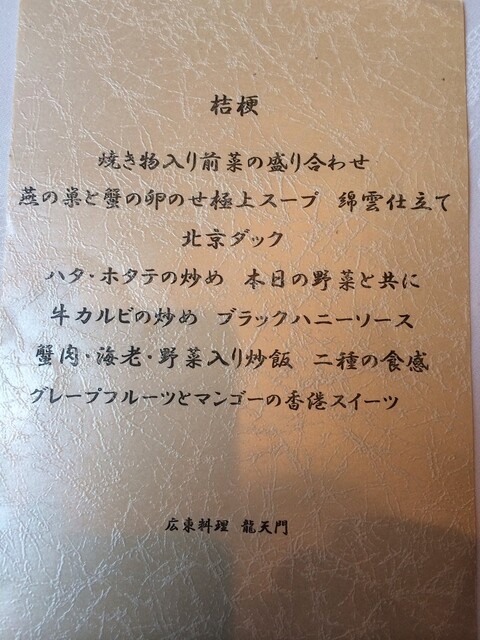 桔梗
焼き物入り前菜の盛り合わせ
燕の巣と蟹の卵のせ極上スープ 綿雲仕立て
北京ダック
ハタ・ホタテの炒め 本日の野菜と共に
牛カルビの炒め ブラックハニーソース
蟹肉・海老・野菜入り炒飯 二種の食感
グレープフルーツとマンゴーの香港スイーツ
広東料理 龍天門